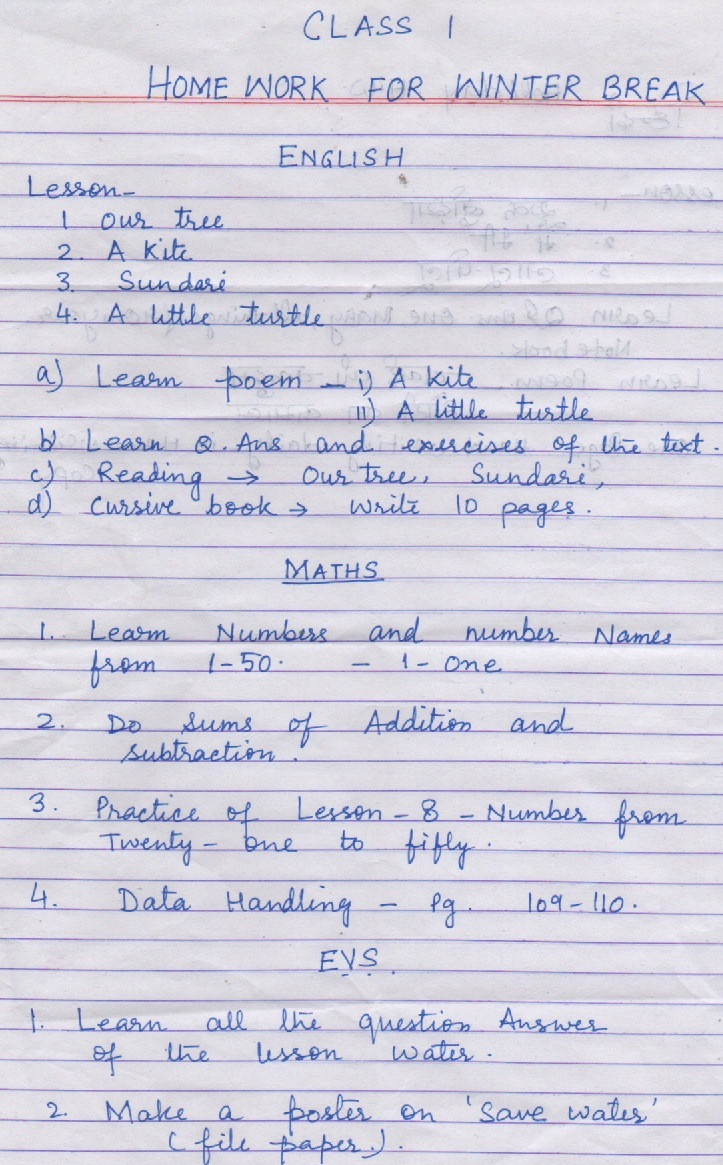 CLASS 1
HOME WORK FOR WINTER BREAK
ENGLISH
Lesson-
1 Our tree
2. A Kite
3. Sundari
4. A little turtle
a) Learn poem - i) A kite
ii) A little turtle
b) Learn Q. Ans and exercises of the text.
c) Reading → Our tree, Sundari,
d) Cursive book → write 10 pages.
MATHS
1. Learn Numbers and number Names
from 1-50. - 1- One
2. Do sums of Addition and
subtraction.
3. Practice of Lesson - 8 - Number from
Twenty - one to fifly.
4. Data Handling - Pg. 109-110.
EVS.
1. Learn all the question Answer
of the lesson water.
2. Make a poster on 'Save water'
( file paper.).